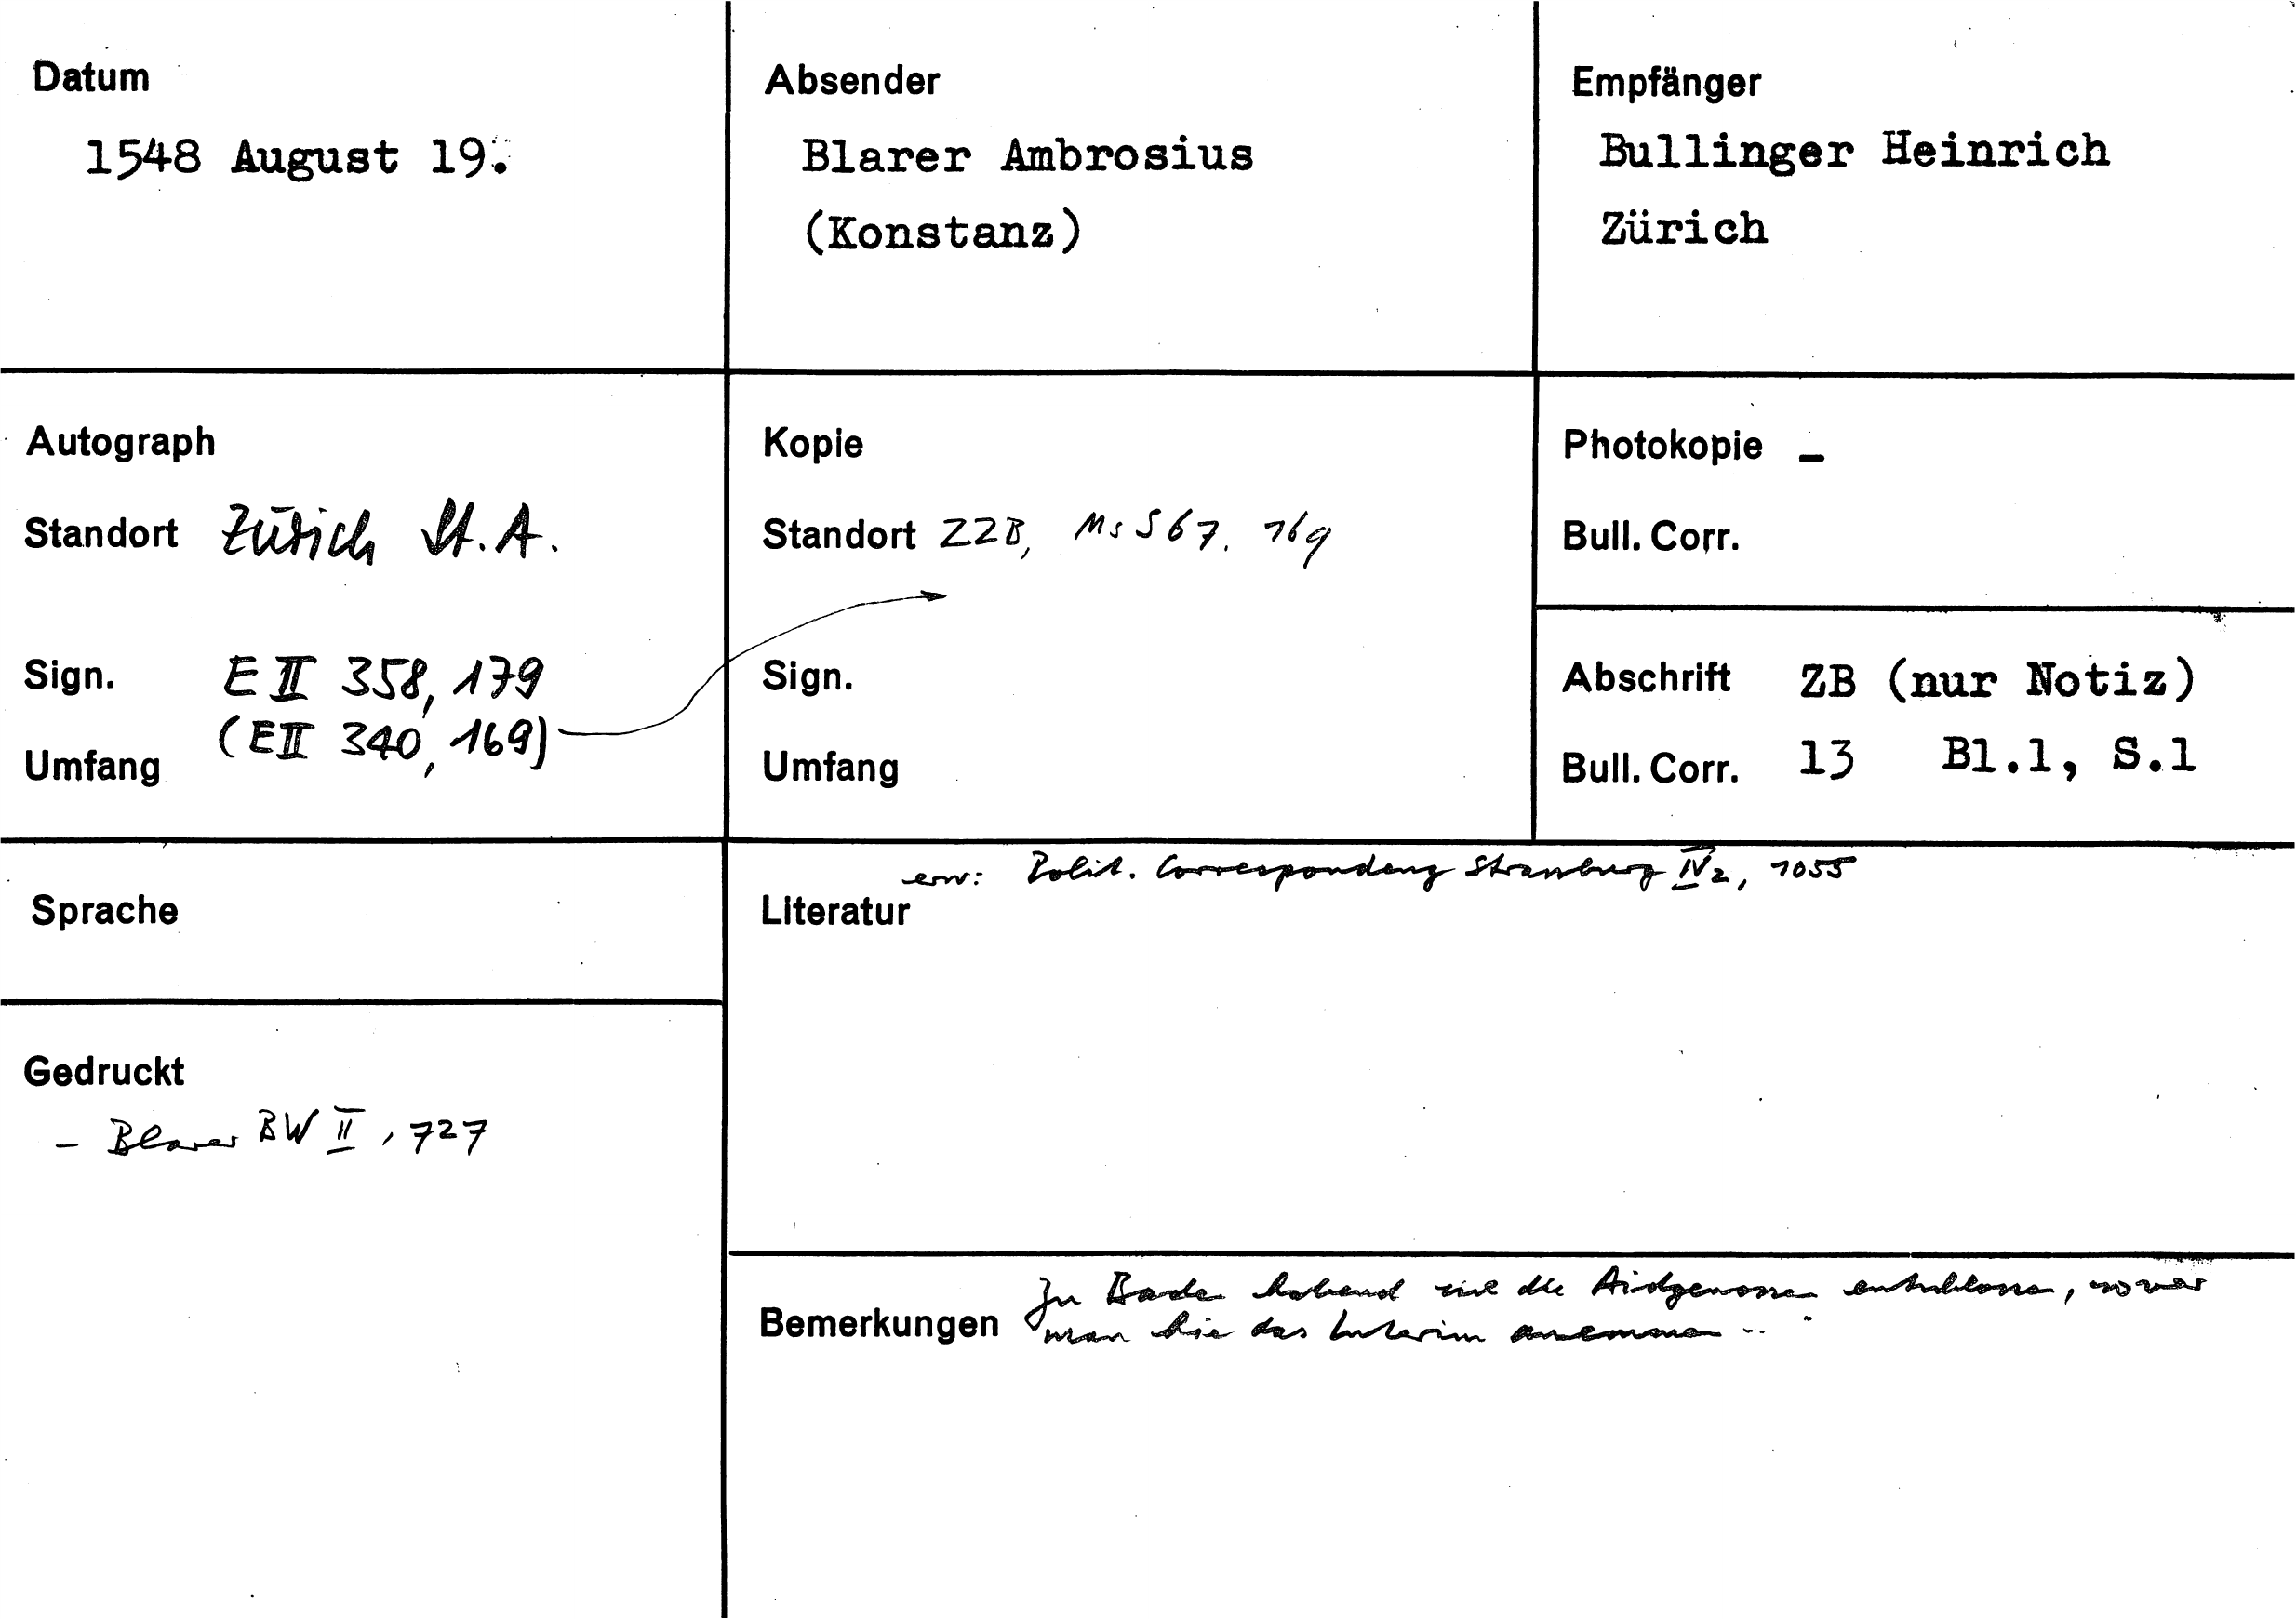 Datum
1548 August 19.
Absender
Blarer Ambrosius
(Konstanz)
Empfänger
Bullinger Heinrich
Zürich
Autograph
Standort Zürich St.A.
Sign. E II 358, 179
(E II 340, 169)
Umfang
Kopie
Standort ZZB, Ms S 67. 169
Sign.
Umfang
Photokopie -
Bull. Corr.
Abschrift ZB (nur Notiz)
Bull. Corr. 13 Bl.1, S.1
Sprache
Gedruckt
- Blarer BW II, 727
erw: Polit. Correspondenz Strassburg IV2, 1055
Literatur
Bemerkungen
Zu Baden habend die Aidgenossen entschlossen,
man hie das Interim annemmen ..